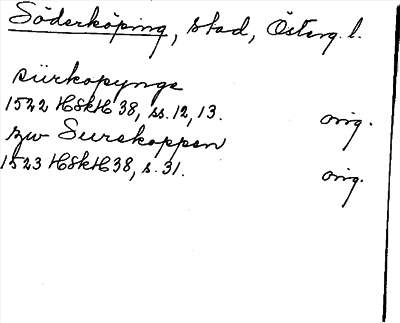 Söderköping, stad, Österg. l.
sürkopynge
1522 HSkH 38, ss. 12, 13. orig.
zw Surskoppen
1523 HSkH 38, s. 31. orig.